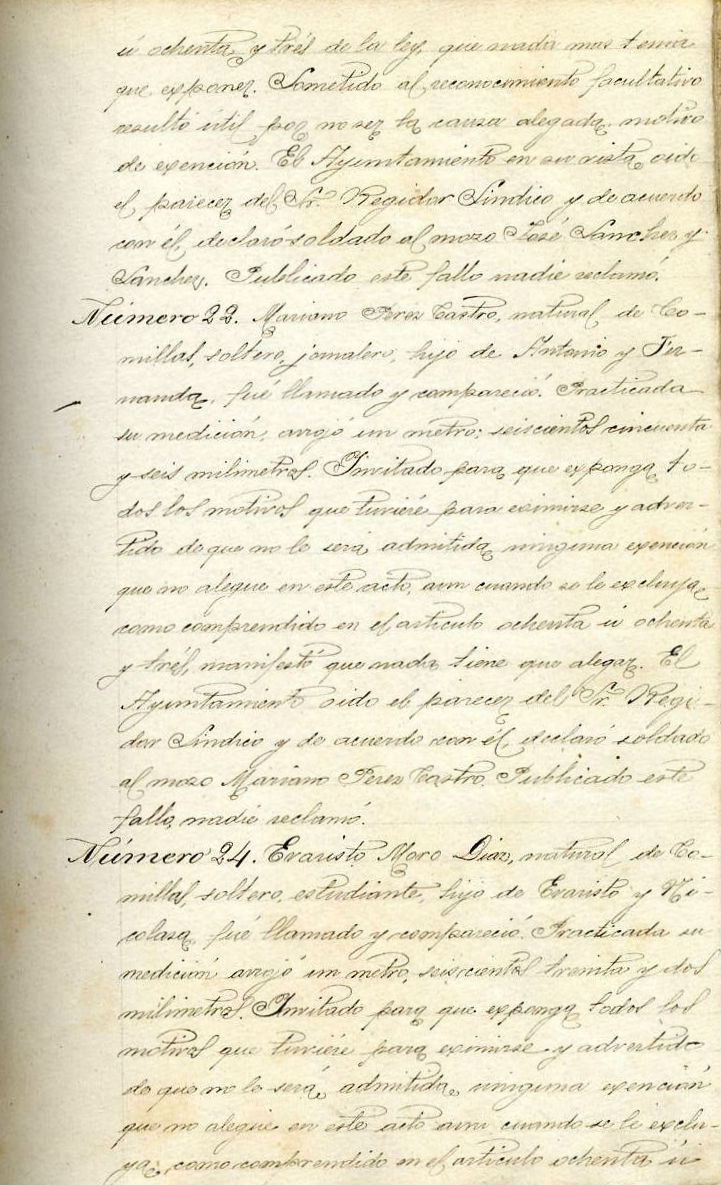 ú ochenta y trés de la ley, que nada mas tenia
que exponer. Sometido al reconocimiento facultativo
resultó útil por no ser la causa alegada, motivo
de exención. El Ayuntamiento en su vista, oido
el parecer del Sr. Regidor Síndico y de acuerdo
con él, declaró soldado al mozo José Sanchez y
Sanchez. Publicado este fallo nadie reclamó.
Número 22. Mariano Perez Castro, natural de Co-
millas, soltero, jornalero, hijo de Antonio y Fer-
nanda, fué llamado y compareció. Practicada
su medición, arrojó un metro, seiscientos cincuenta
y seis milimetros. Invitado para que exponga to-
dos los motivos que tuviére para eximirse y adver-
tido de que no le será admitida ninguna exención
que no alegue en este acto, aun cuando se le excluya
como comprendido en el articulo ochenta ú ochenta
y trés, manifestó que nada tiene que alegar. El
Ayuntamiento oido el parecer del Sr. Regi-
dor Síndico y de acuerdo con él, declaró soldado
al mozo Mariano Perez Castro. Publicado este
fallo, nadie reclamó.
Número 24. Evaristo Moro Diaz, natural de Co-
millas, soltero, estudiante, hijo de Evaristo y Ni-
colasa, fué llamado y compareció. Practicada su
medición arrojó un metro, seiscientos treinta y dos
milimetros. Invitado para que exponga todos los
motivos que tuviére para eximirse y advertido
de que no le será admitida ninguna exención
que no alegue en este acto aun cuando se le exclu-
ya, como comprendido en el articulo ochenta ú